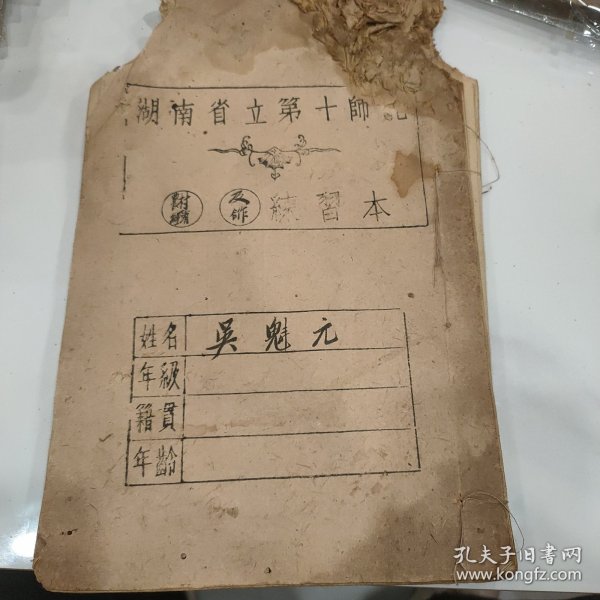 湖南省立第十師範
練習本
姓名 吳魁元
年級
籍貫
年齡
孔夫子旧书网
www.kongfz.com